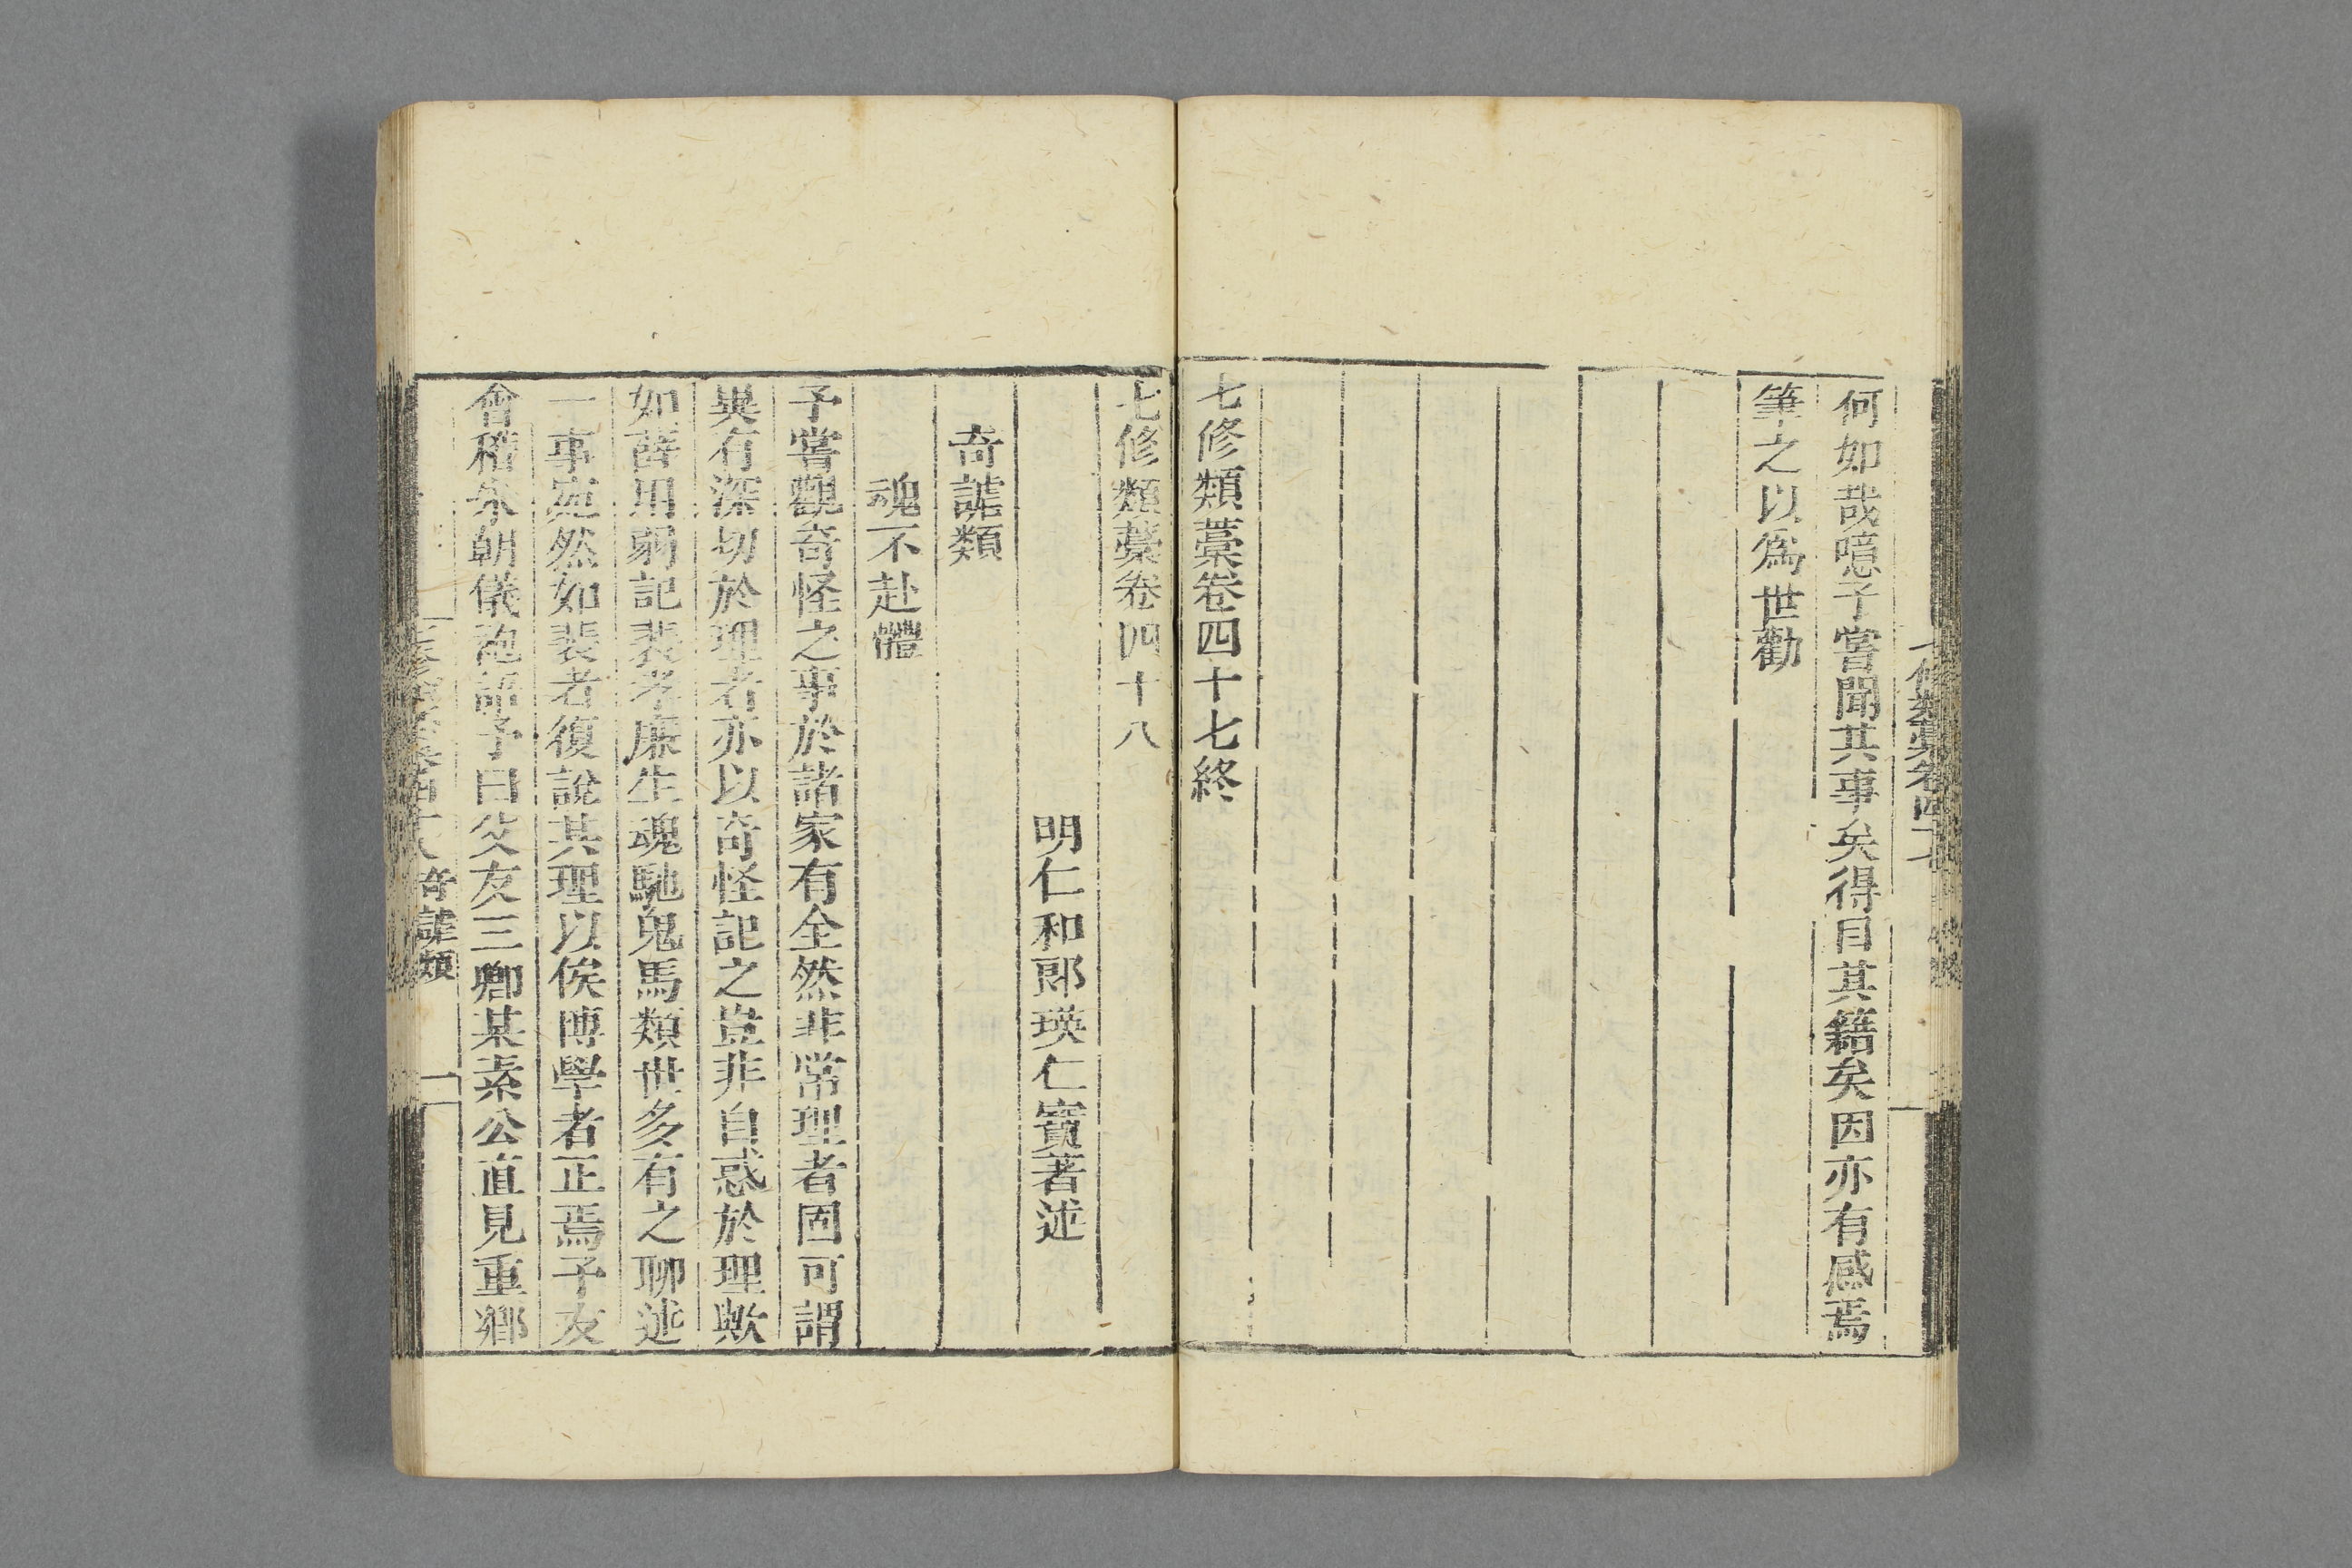 何如哉噫予嘗聞其事矣得目其籍矣因亦有感焉
筆之以爲世勸
七修類藁卷四十七終
七修類藁卷四十八
明仁和郎瑛仁寶著述
奇謔類
魂不赴體
予嘗觀奇怪之事於諸家有全然非常理者固可謂
異有深切於理者亦以奇怪記之豈非自惑於理歟
如薛用弱記裴孝廉生魂馳鬼馬類世多有之聊述
一事宛然如裴者復說其理以俟博學者正焉予友
會稽朱朝儀袍語予曰父友三卿某素公直見重鄉
奇謔類